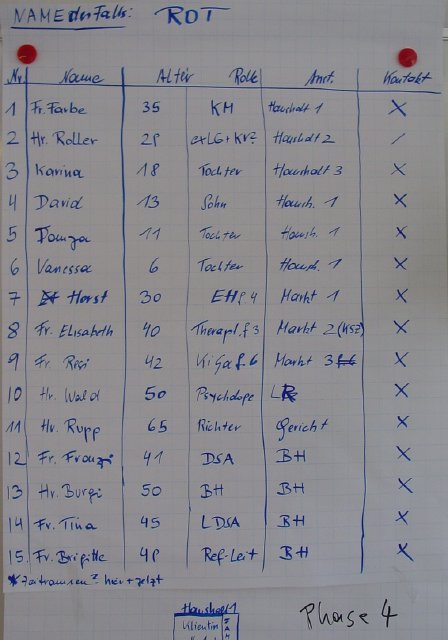 NAME des Falls: ROT
Nr. Name Alter Rolle Anst. Kontakt
1 Fr. Farbe 35 KM Haushalt 1 X
2 Hr. Roller 28 Haushalt 2 /
3 Karina 18 Tochter Haushalt 3 X
4 David 13 Sohn Haush. 1 X
5 11 Tochter Haush. 1 X
6 Vanessa 6 Tochter Haush. 1 X
7 Horst 30 EH f 4 Markt 1 X
8 Fr. Elisabeth 40 Therapt. f 3 Markt 2 (KSZ) X
9 Fr. Resi 42 KiGa f. 6 Markt 3 X
10 Hr. Wald 50 Psychologe X
11 Hr. Rupp 65 Richter Gericht X
12 Fr. Franzi 41 DSA BH X
13 Hr. Burgi 50 BH BH X
14 Fr. Tina 45 LDSA BH X
15. Fr. Brigitte 48 Ref-Leit BH X
hier + jetzt
Haushalt 1
Klientin
Phase 4